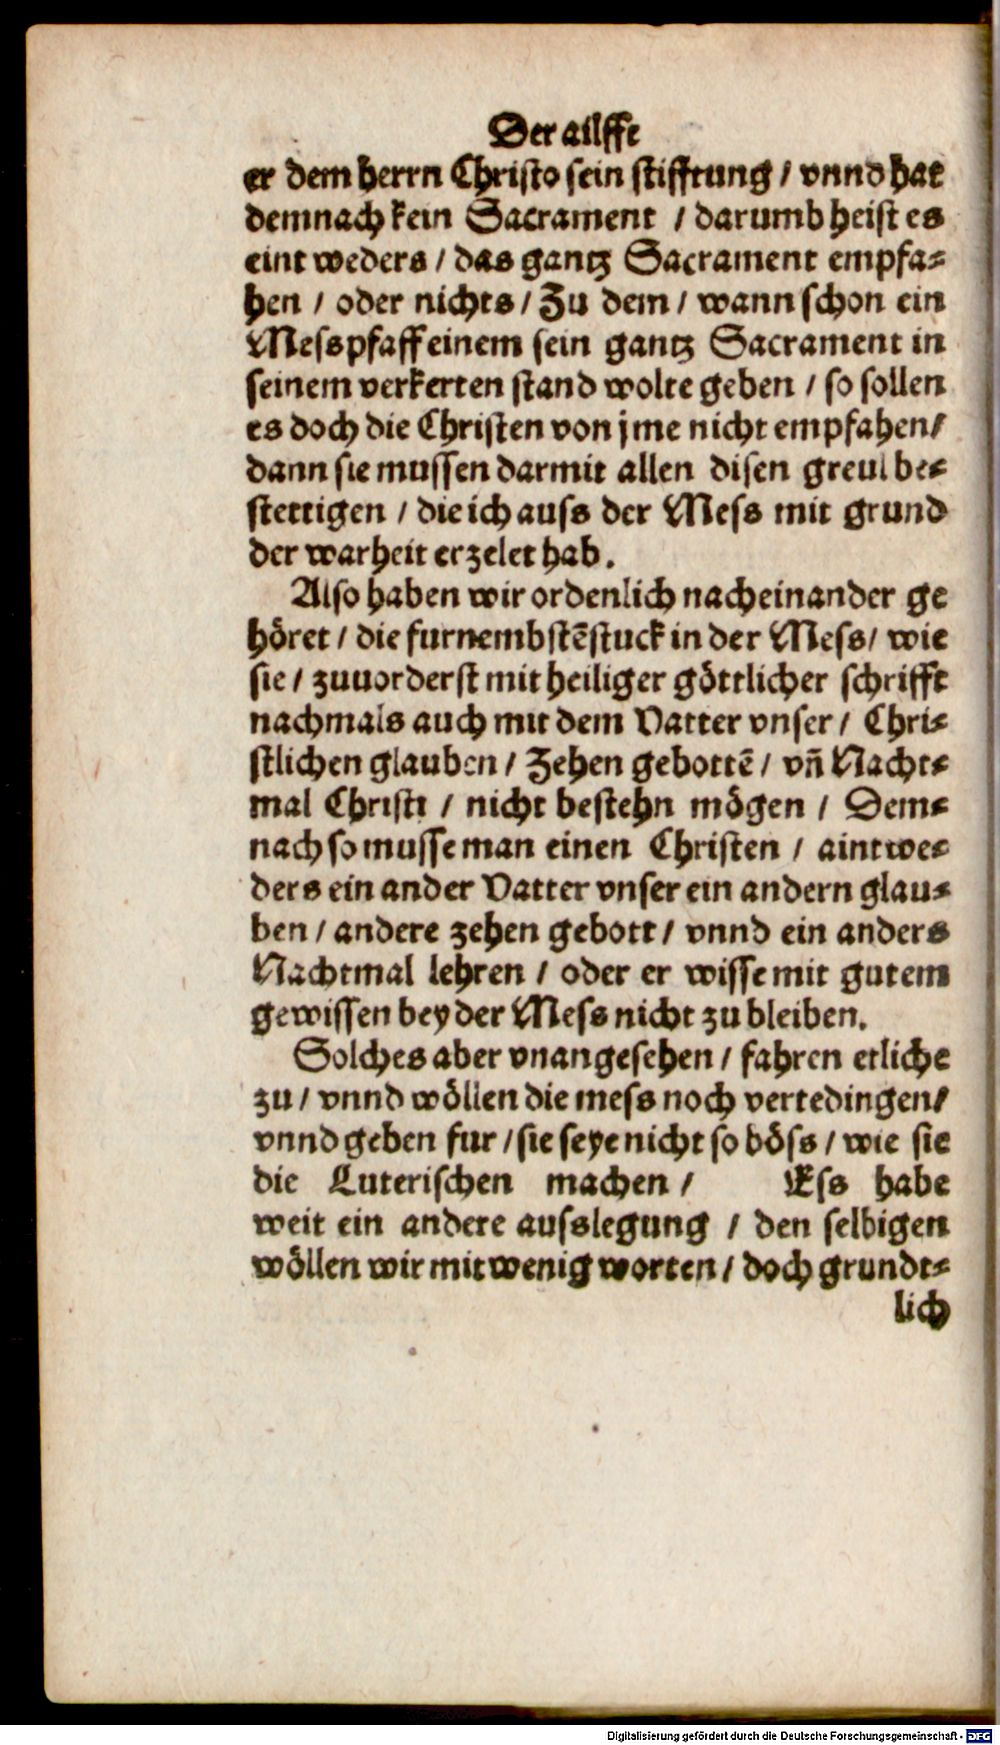 Der ailffe
er dem herrn Christo sein stifftung / vnnd hat
demnach kein Sacrament / darumb heist es
eint weders / das gantz Sacrament empfa⸗
hen / oder nichts / Zu dem / wann schon ein
Messpfaff einem sein gantz Sacrament in
seinem verkerten stand wolte geben / so sollen
es doch die Christen von jme nicht empfahen/
dann sie mussen darmit allen disen greul be⸗
stettigen / die ich auss der Mess mit grund
der warheit erzelet hab.
Also haben wir ordenlich nacheinander ge
höret / die furnembstē stuck in der Mess / wie
sie / zuuorderst mit heiliger göttlicher schrifft
nachmals auch mit dem Vatter vnser / Chri⸗
stlichen glauben / Zehen gebottē / vñ Nacht⸗
mal Christi / nicht bestehn mögen / Dem⸗
nach so musse man einen Christen / aintwe⸗
ders ein ander Vatter vnser ein andern glau⸗
ben / andere zehen gebott / vnnd ein anders
Nachtmal lehren / oder er wisse mit gutem
gewissen bey der Mess nicht zu bleiben.
Solches aber vnangesehen / fahren etliche
zu / vnnd wöllen die mess noch vertedingen/
vnnd geben fur / sie seye nicht so böss / wie sie
die Luterischen machen / Ess habe
weit ein andere ausslegung / den selbigen
wöllen wir mit wenig worten / doch grundt⸗
lich
Digitalisierung gefördert durch die Deutsche Forschungsgemeinschaft - DFG